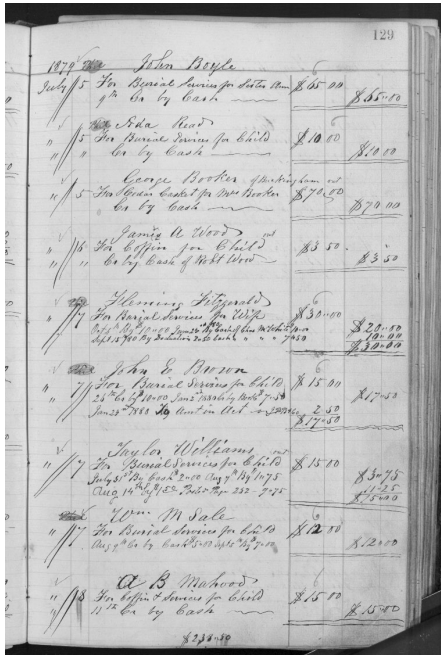 129
1879 John Boyle
July 5 For Burial Services for Sister Ann $65 00
9th Cr by Cash $65-00
Ada Read
" 5 For Burial Services for Child $10 00
" " Cr by Cash $10 00
George Booker of Buckingham
" 5 For Casket for Mrs Booker $70,00
Cr by Cash $70 00
James A Wood
" 6 For Coffin for Child $3 50
" " Cr by Cash of Robt Wood $3 50
Fleming Fitzgerald
" 7 For Burial Services for Wife $30-00
10-00 $20-00
Sept 15 /80 By 7-50 10-00
$30-00
John E Brown
" 7 For Burial Services for Child $15 00
25th Cr by 10-00 Jany 2d 1880 by 7-50 $17-50
Jan 2d 1880 To Amt on Act 2 50
$17-50
Taylor Williams
" 7 For Burial Services for Child $15 00
July 31st By Cash 2-00 Aug 7th By 1-75 $3-75
Aug 14th 232 - 7-75 11-25
$15-00
Wm M Sale
" 7 For Burial Services for Child $12 00
Aug 9th Cr by Cash 5-00 Sept 5th By 7-00 $12-00
A B Mahood
" 8 For Coffin & Services for Child $15 00
" 11th Cr by Cash $15-00